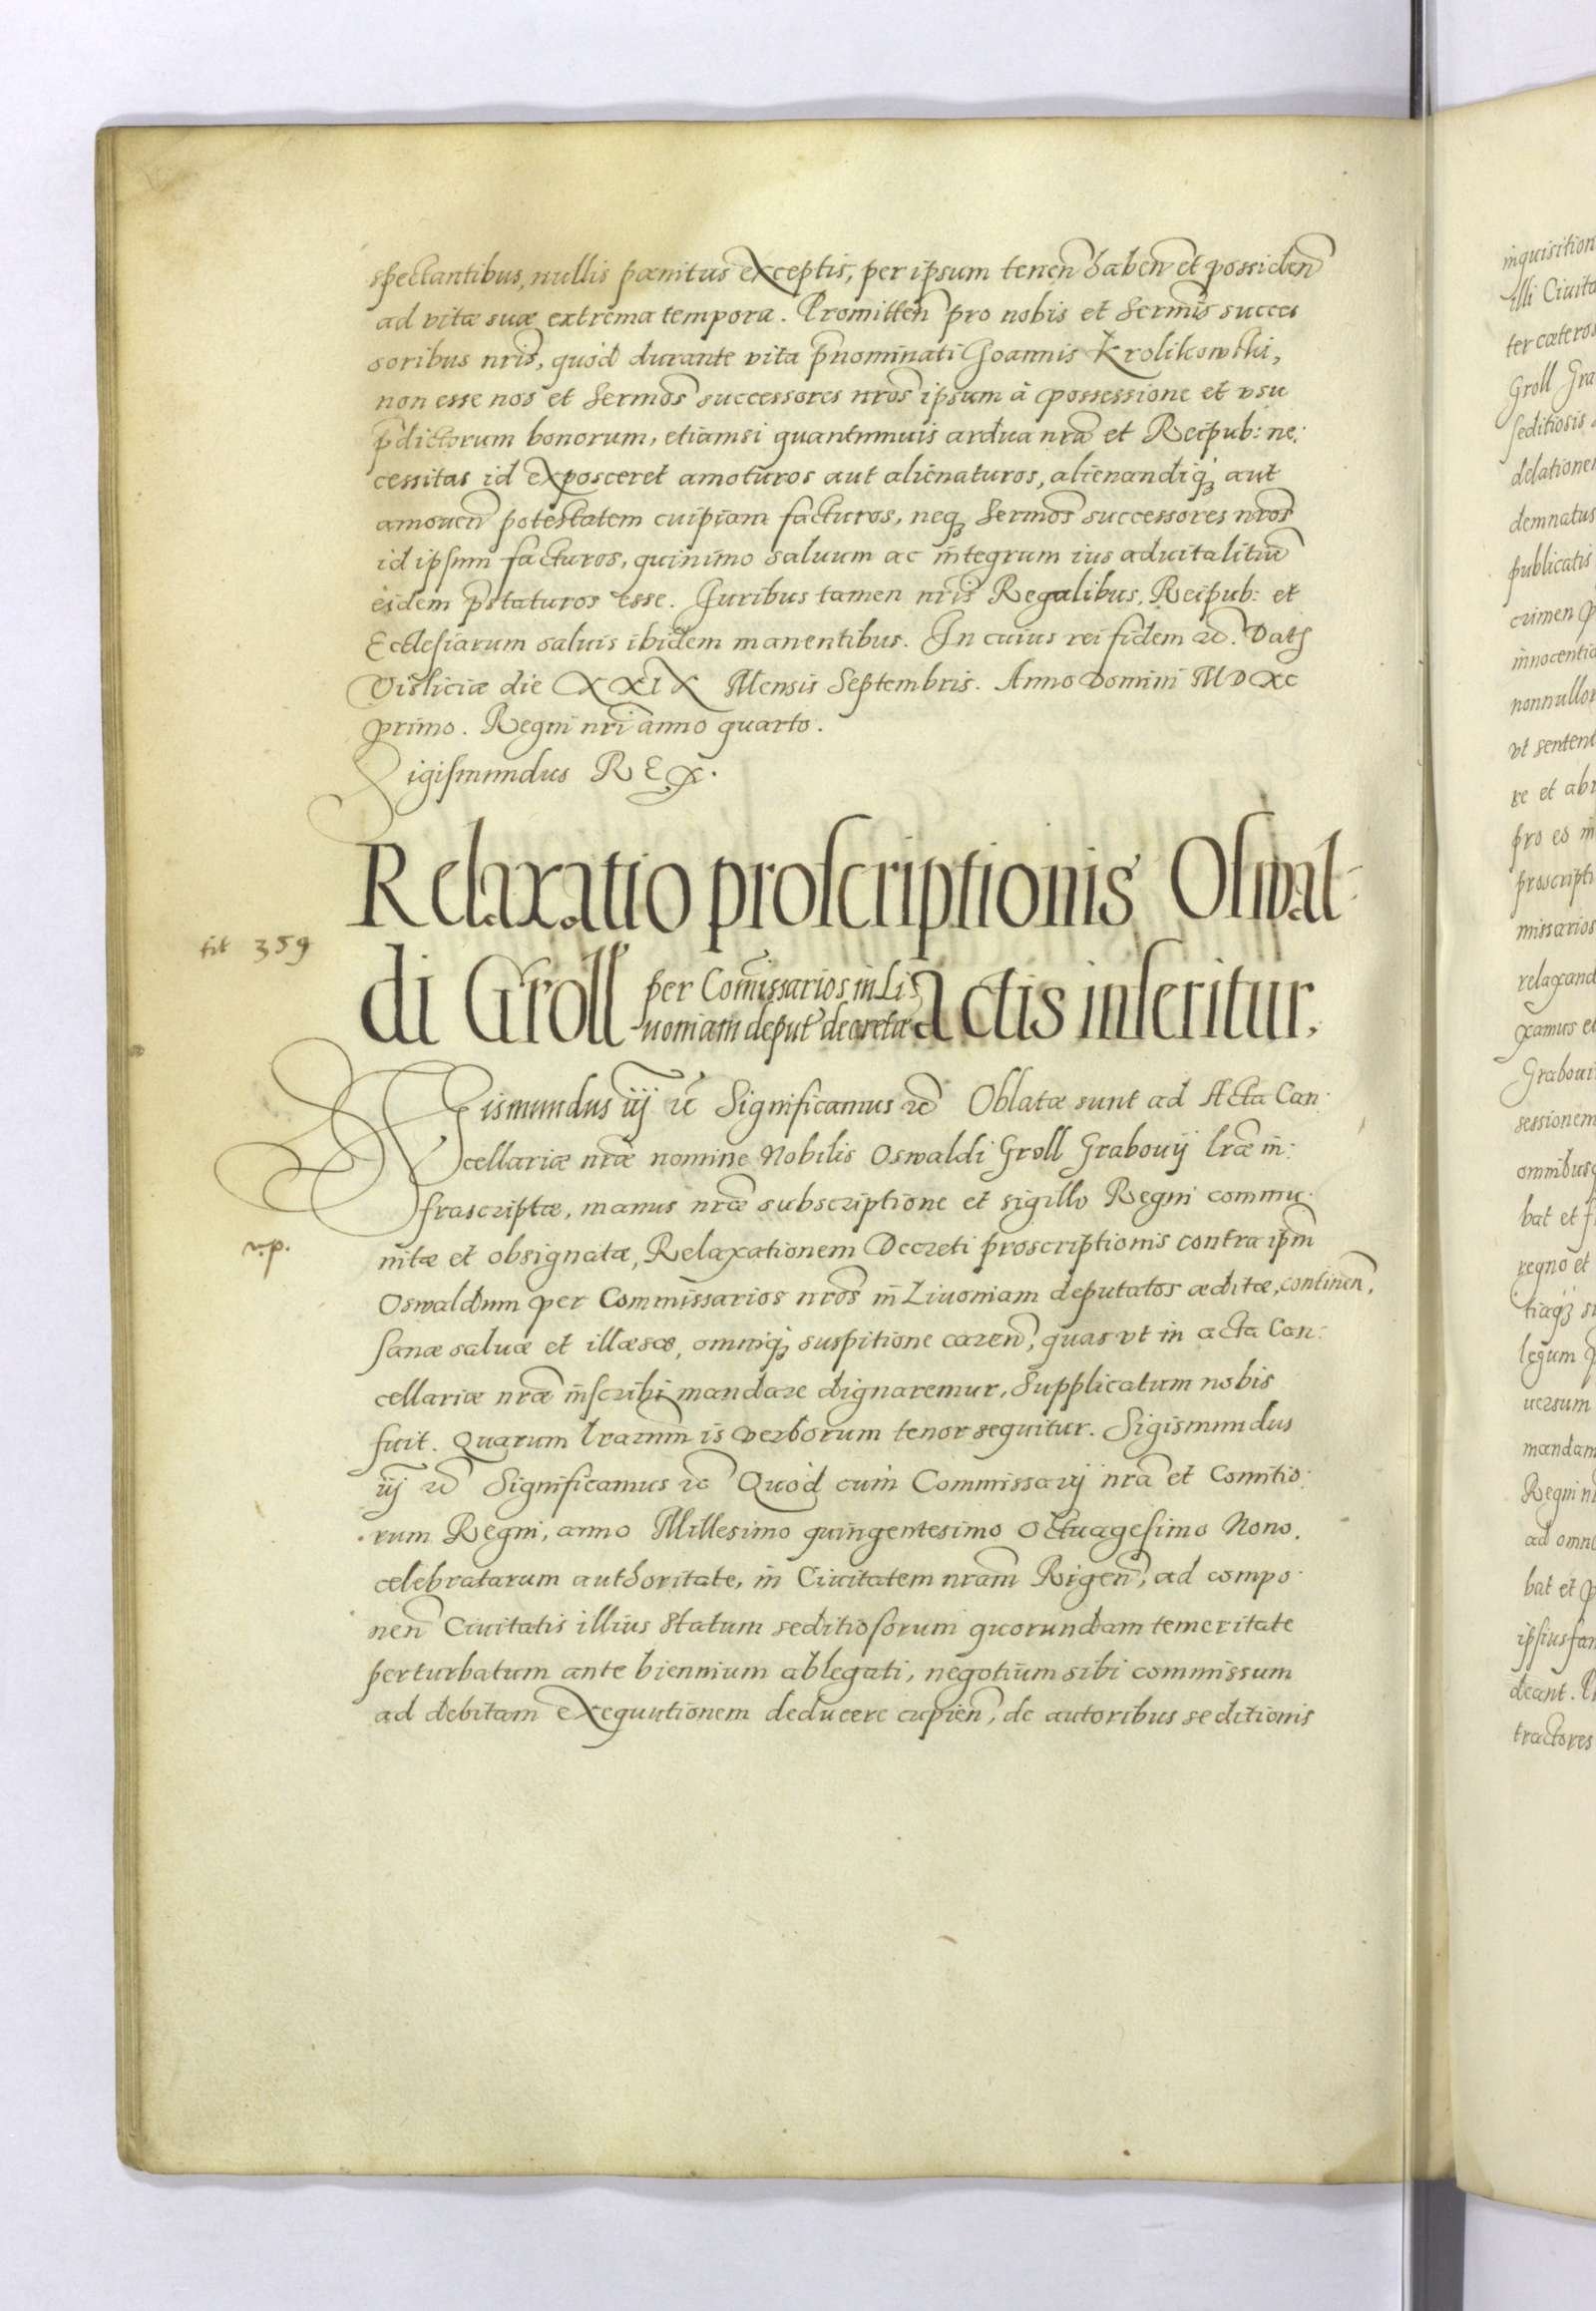 spectantibus, nullis pænitus exceptis, per ipsum tenen̄ haben̄ et possiden̄
ad vitæ suæ extrema tempora. Promitten̄ pro nobis et Sermis̄ succes
soribus nris̄, quòd durante vita p̄nominati Joannis Krolikowski,
non esse nos et Sermos̄ successores nros̄ ipsum à possessione et vsu
p̄dictorum bonorum, etiamsi quantumuis ardua nrā et Reipub: ne:
cessitas id exposceret amoturos aut alienaturos, alienandiq₃ aut
amouen̄ potestatem cuipiam facturos, neq₃ Sermos̄ successores nros̄
id ipsum facturos, quinimo saluum ac integrum ius aduitalitiū
eidem p̄staturos esse. Juribus tamen nris̄ Regalibus, Reipub: et
Ecclesiarum saluis ibidem manentibus. In cuius rei fidem &c̄. Datȝ
Visliciæ die XXIX Mensis Septembris. Anno Domini MDXC
primo. Regni nrī anno quarto.
Sigismundus REX.
Relaxatio proscriptionis Oswal-
tit 359
di Groll per Com̄issarios in Li
uoniam deput̄ decretæ actis inseritur.
Sigismundus iij &c̄ Significamus &c̄ Oblatæ sunt ad Acta Can:
cellariæ nrǣ nomine Nobilis Oswaldi Groll Grabouij lrǣ in:
frascriptæ, manus nrǣ subscriptione et sigillo Regni commu:
r. p.
nitæ et obsignatæ, Relaxationem Decreti proscriptionis contra ipm̄
Oswaldum per Commissarios nros̄ in Livoniam deputatos æditæ, continen̄,
sanæ saluæ et illæsæ, omniq₃ suspitione caren̄, quas vt in acta Can:
cellariæ nrǣ inscribi mandare dignaremur, Supplicatum nobis
fuit. Quarum lrarum̄ is verborum tenor sequitur. Sigismundus
iij &c̄ Significamus &c̄ Quòd cum Commissarij nrā et Comitio:
rum Regni, anno Millesimo quingentesimo Octuagesimo Nono,
celebratarum authoritate, in Ciuitatem nram̄ Rigen̄, ad compo:
nen̄ Ciuitatis illius Statum seditiosorum quorundam temeritate
perturbatum ante biennium ablegati, negotium sibi commissum
ad debitam exequutionem deducere cupien̄, de autoribus seditionis
inquisition
illi Ciuita
ter cæteros
Groll Gra
seditiosis
delationem
demnatus
publicatis
crimen
innocentia
nonnullor
vt sentent
re et abr
pro eo in
proscripti
missarios
relaxand
xamus e
Graboui
sessionem
omnibusq
bat et f
regno et
tiaq₃ s
legum
uersum
mandam
Regni n
ad omn
bat et p
ipsius fam
deant.
tractores